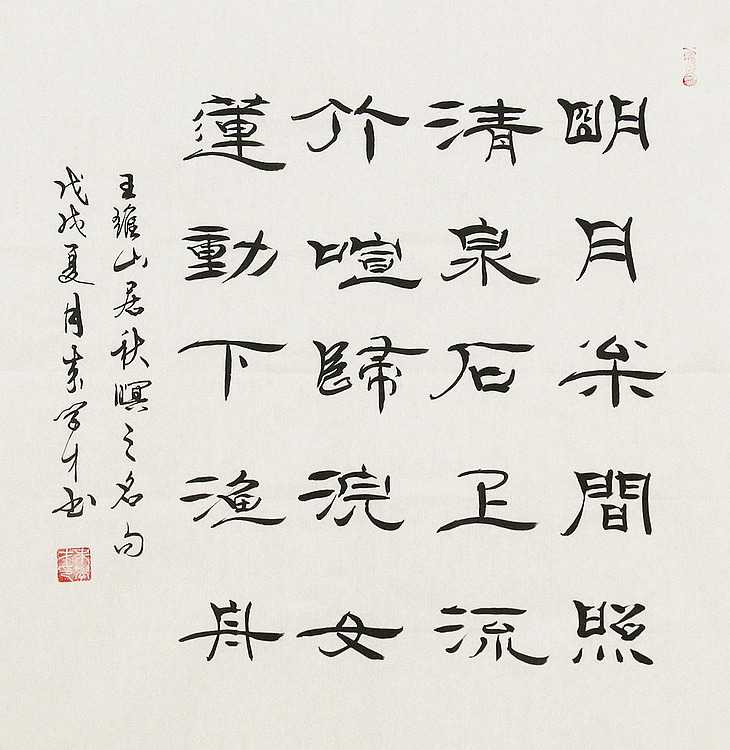 明月松間照
清泉石上流
竹喧歸浣女
蓮動下漁舟
王維山居秋暝之名句
戊戌夏月朱学才书